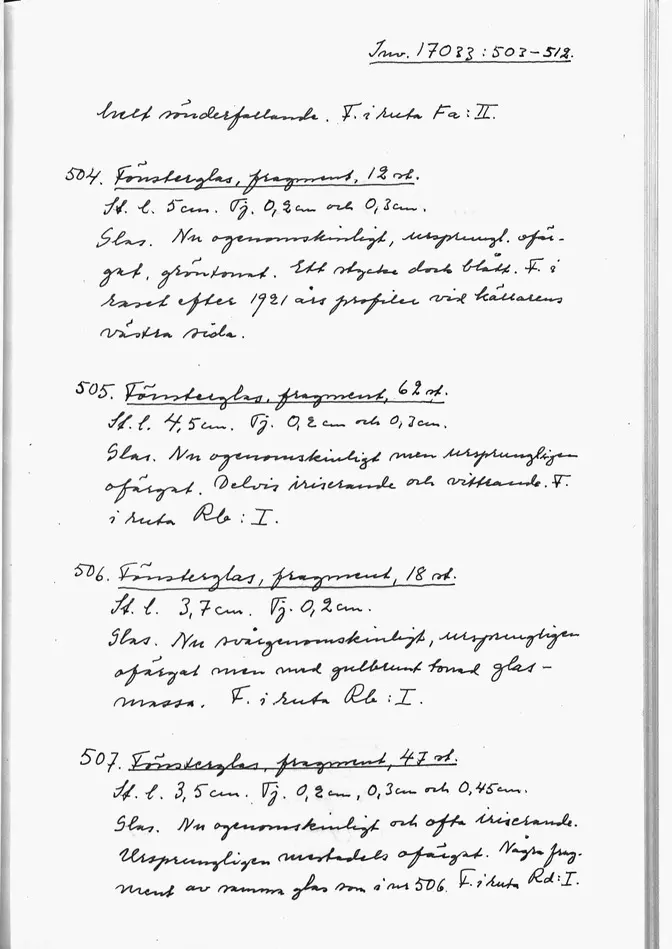 Inv. 17033:503-512.
helt sönderfallande. F. i ruta Fa:II.
504. Fönsterglas, fragment, 12 st.
St. l. 5cm. Tj. 0,2cm och 0,3cm.
Glas. Nu ogenomskinligt, ursprungl. ofär-
gat, gröntonat. Ett stycke dock blått. F. i
raset efter 1921 års profiler vid källarens
västra sida.
505. Fönsterglas, fragment, 62 st.
St. l. 4,5cm. Tj. 0,2cm och 0,3cm.
Glas. Nu ogenomskinligt men ursprungligen
ofärgat. Delvis iriserande och vittrande. F.
i ruta Rb:I.
506. Fönsterglas, fragment, 18 st.
St. l. 3,7cm. Tj. 0,2cm.
Glas. Nu svårgenomskinligt, ursprungligen
ofärgat men med gulbrunt tonad glas-
massa. F. i ruta Rb:I.
507. Fönsterglas, fragment, 47 st.
St. l. 3,5cm. Tj. 0,2cm, 0,3cm och 0,45cm.
Glas. Nu ogenomskinligt och ofta iriserande.
Ursprungligen mestadels ofärgat. Några frag-
ment av samma glas som i nr 506. F. i ruta Rd:I.